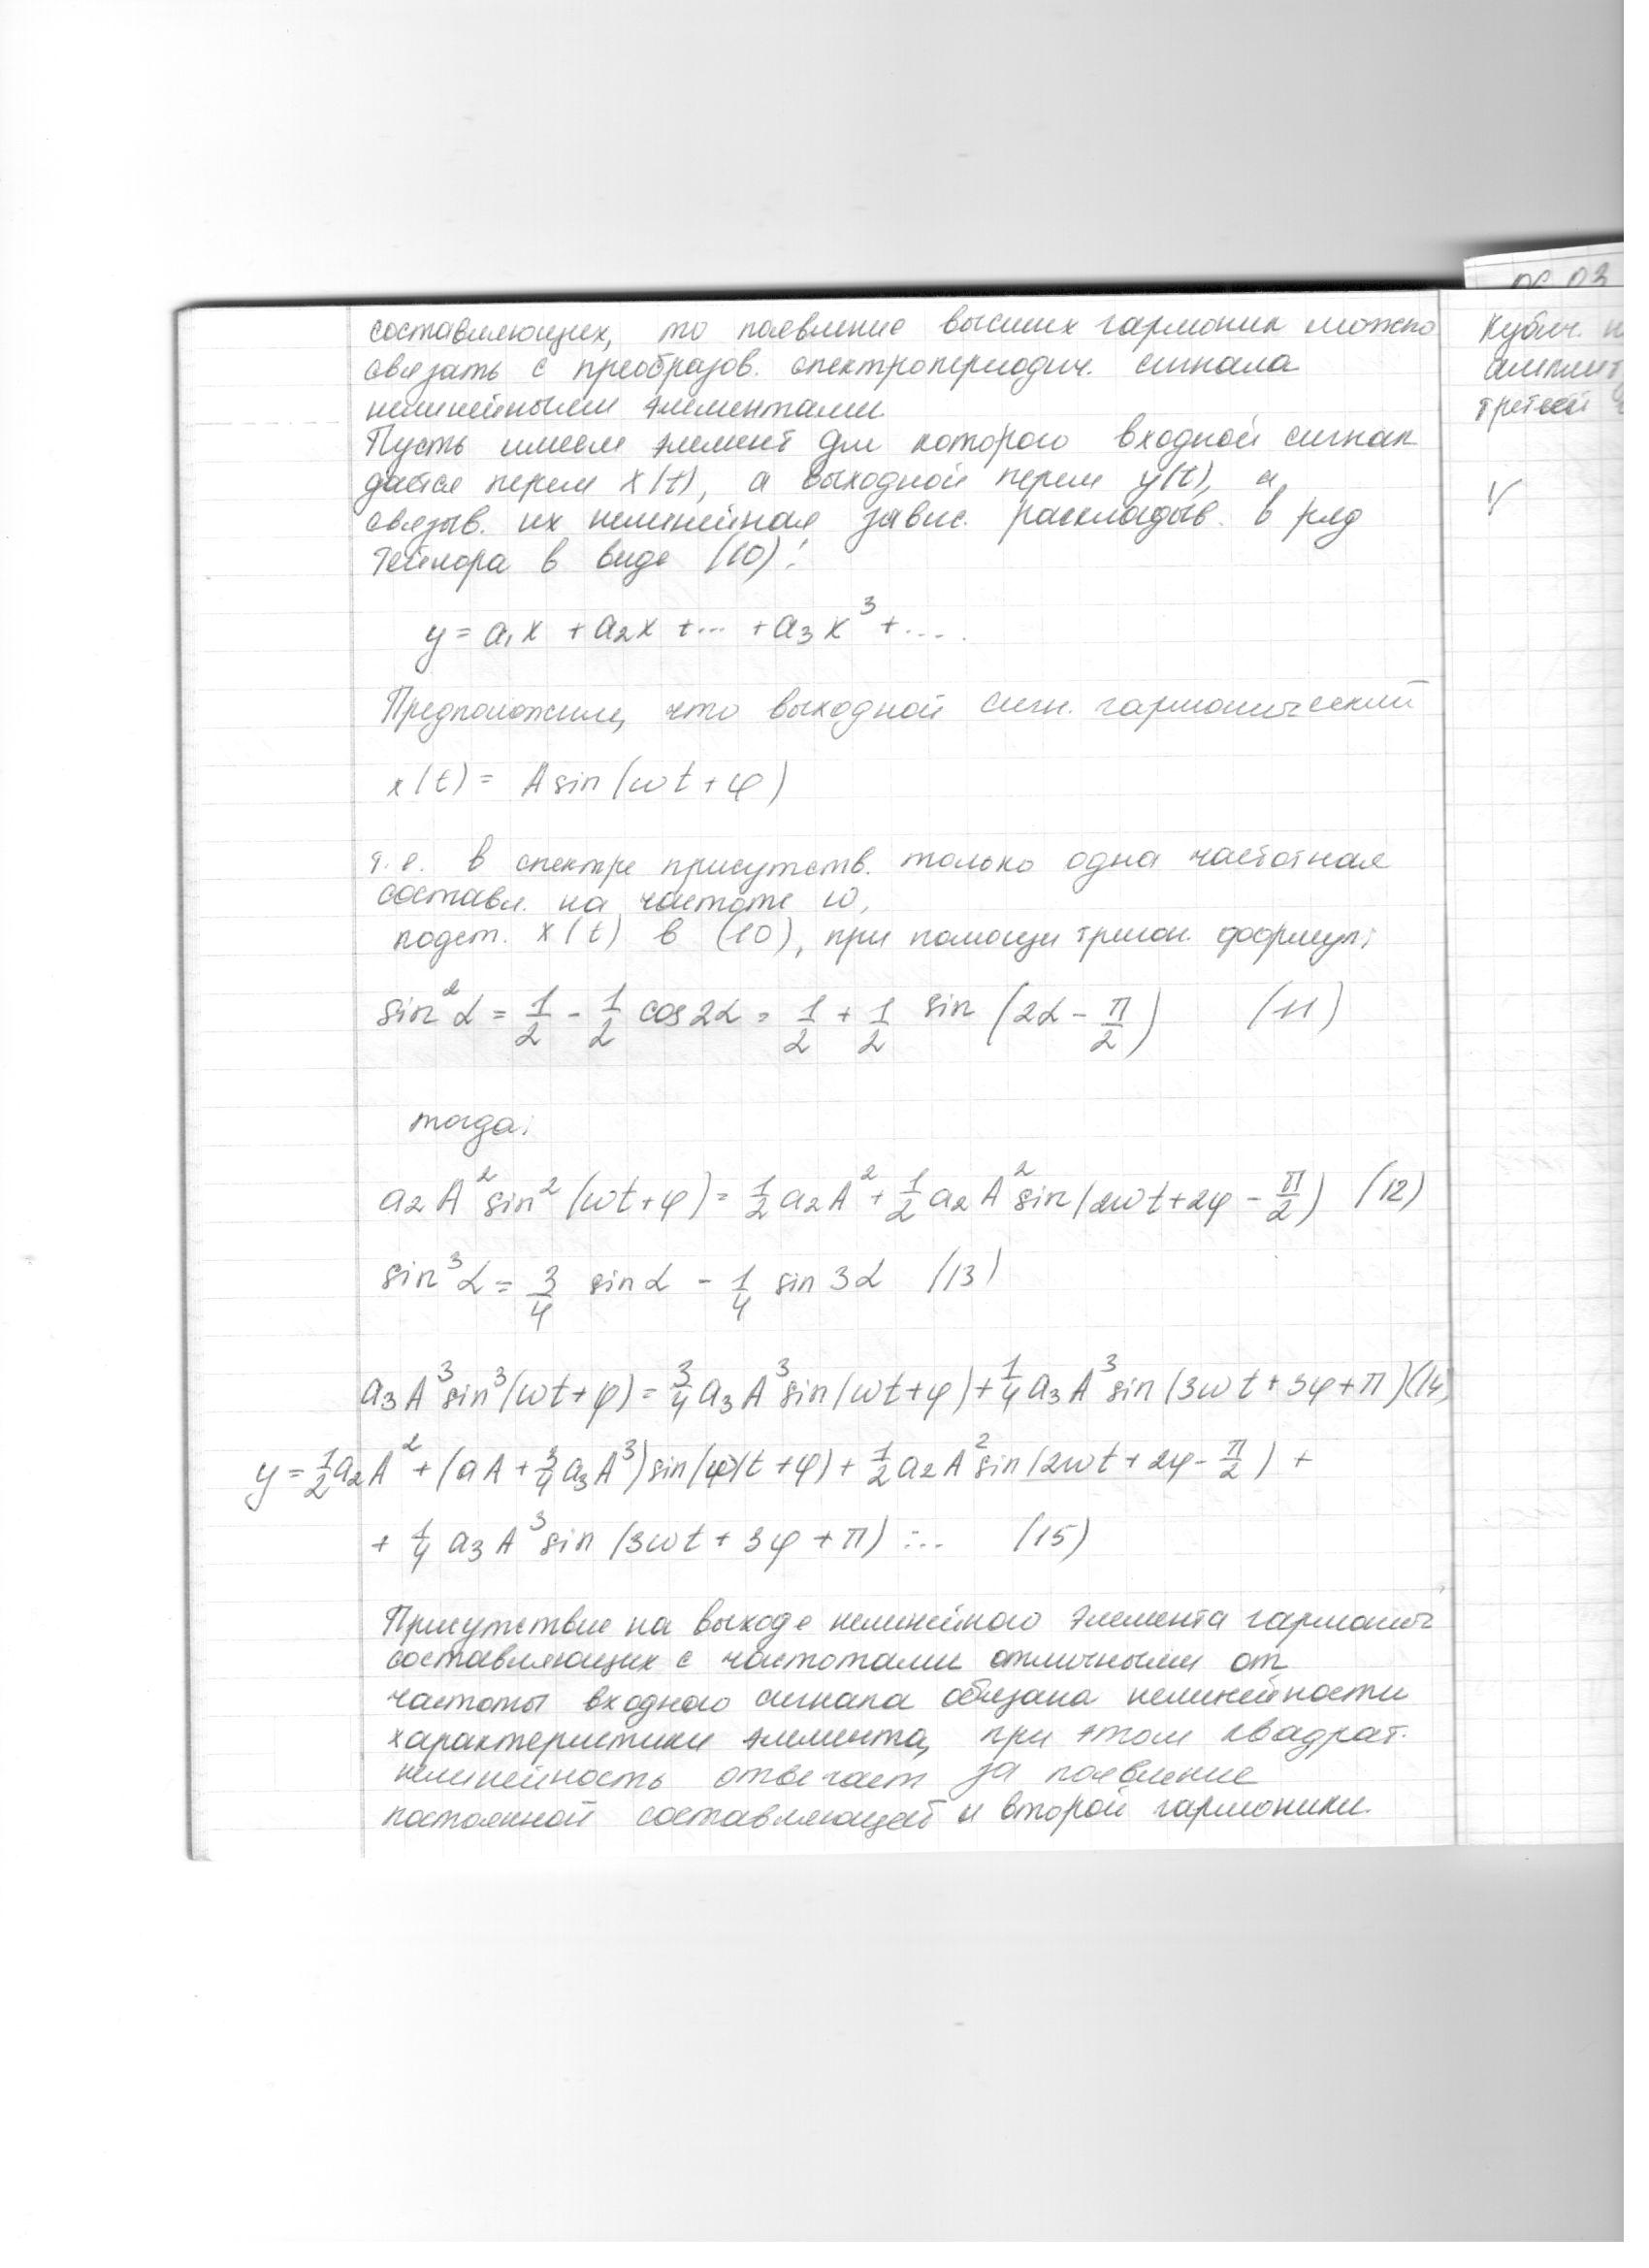 составляющих, то появление высших гармоник можно
связать с преобразов. спектропериодич. сигнала
нелинейными элементами
Пусть имеем элемент для которого входной сигнал
дается перем x(t), а выходной перем y(t), а
связыв. их нелинейная завис. раскладыв. в ряд
Тейлора в виде (10):
y = a₁x + a₂x + ... + a₃x³ + ....
Предположим, что выходной сигн. гармонический
x(t) = A sin(ωt + φ)
т.е. в спектре присутств. только одна частотная
составл. на частоте ω,
подст. x(t) в (10), при помощи тригон. формул:
sin²α = 1/2 - 1/2 cos2α = 1/2 + 1/2 sin (2α - π/2) (11)
тогда:
a₂A² sin² (ωt + φ) = 1/2 a₂A² + 1/2 a₂A² sin(2ωt + 2φ - π/2) (12)
sin³α = 3/4 sinα - 1/4 sin3α (13)
a₃A³ sin³(ωt + φ) = 3/4 a₃A³ sin(ωt + φ) + 1/4 a₃A³ sin(3ωt + 3φ + π) (14)
y = 1/2 a₂A² + (aA + 3/4 a₃A³) sin(ωt + φ) + 1/2 a₂A² sin(2ωt + 2φ - π/2) +
+ 1/4 a₃A³ sin(3ωt + 3φ + π) ... (15)
Присутствие на выходе нелинейного элемента гармонич
составляющих с частотами отличными от
частоты входного сигнала обязана нелинейности
характеристики элемента, при этом квадрат.
нелинейность отвечает за появление
постоянной составляющей и второй гармоники.
Кубич. н
амплит
третьей